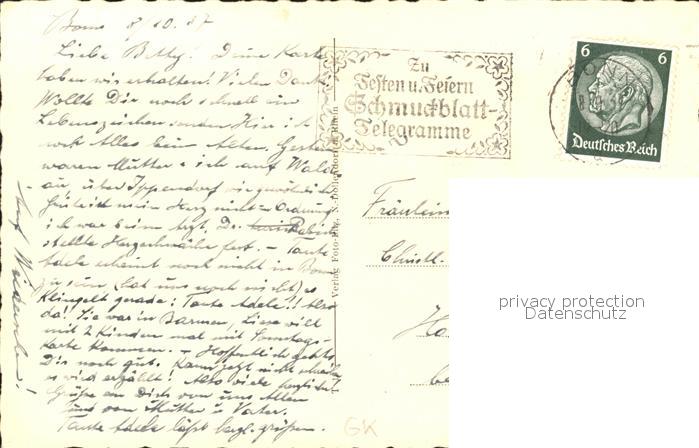 Bonn 8/10. 37
Liebe Bethy! Deine Karte
haben wir erhalten. Vielen Dank
Wollte Dir noch schnell ein
Lebenszeichen senden Hier ist
noch Alles beim Alten. Gestern
waren Mutter + ich auf Wald
au, über Ippendorf wie gewöhnlich
mein Herz nicht in Ordnung
ich war beim Arzt. Dr.
stellte Herzschwäche fest. – Tante
Adele scheint noch nicht in Bonn
zu sein, hat uns noch nicht) es
Klingelt gerade: Tante Adele!! Also
da! Sie war in Barmen, will
mit 2 Kindern mal mit Sonntags-
karte kommen. – Hoffentlich geht's
Dir noch gut. Kann jetzt nicht
es wird erzählt! Also viele herzliche
Grüße an Dich von uns Allen
und von Mutter u. Vater.
Tante Adele läßt herzl. grüßen.
Auf Wiedersehn!
Verlag Foto-
Zu
Festen u. Feiern
Schmuckblatt-
Telegramme
BONN
6 6
Deutsches Reich
Fräulein
Christl.
privacy protection
Datenschutz
GK